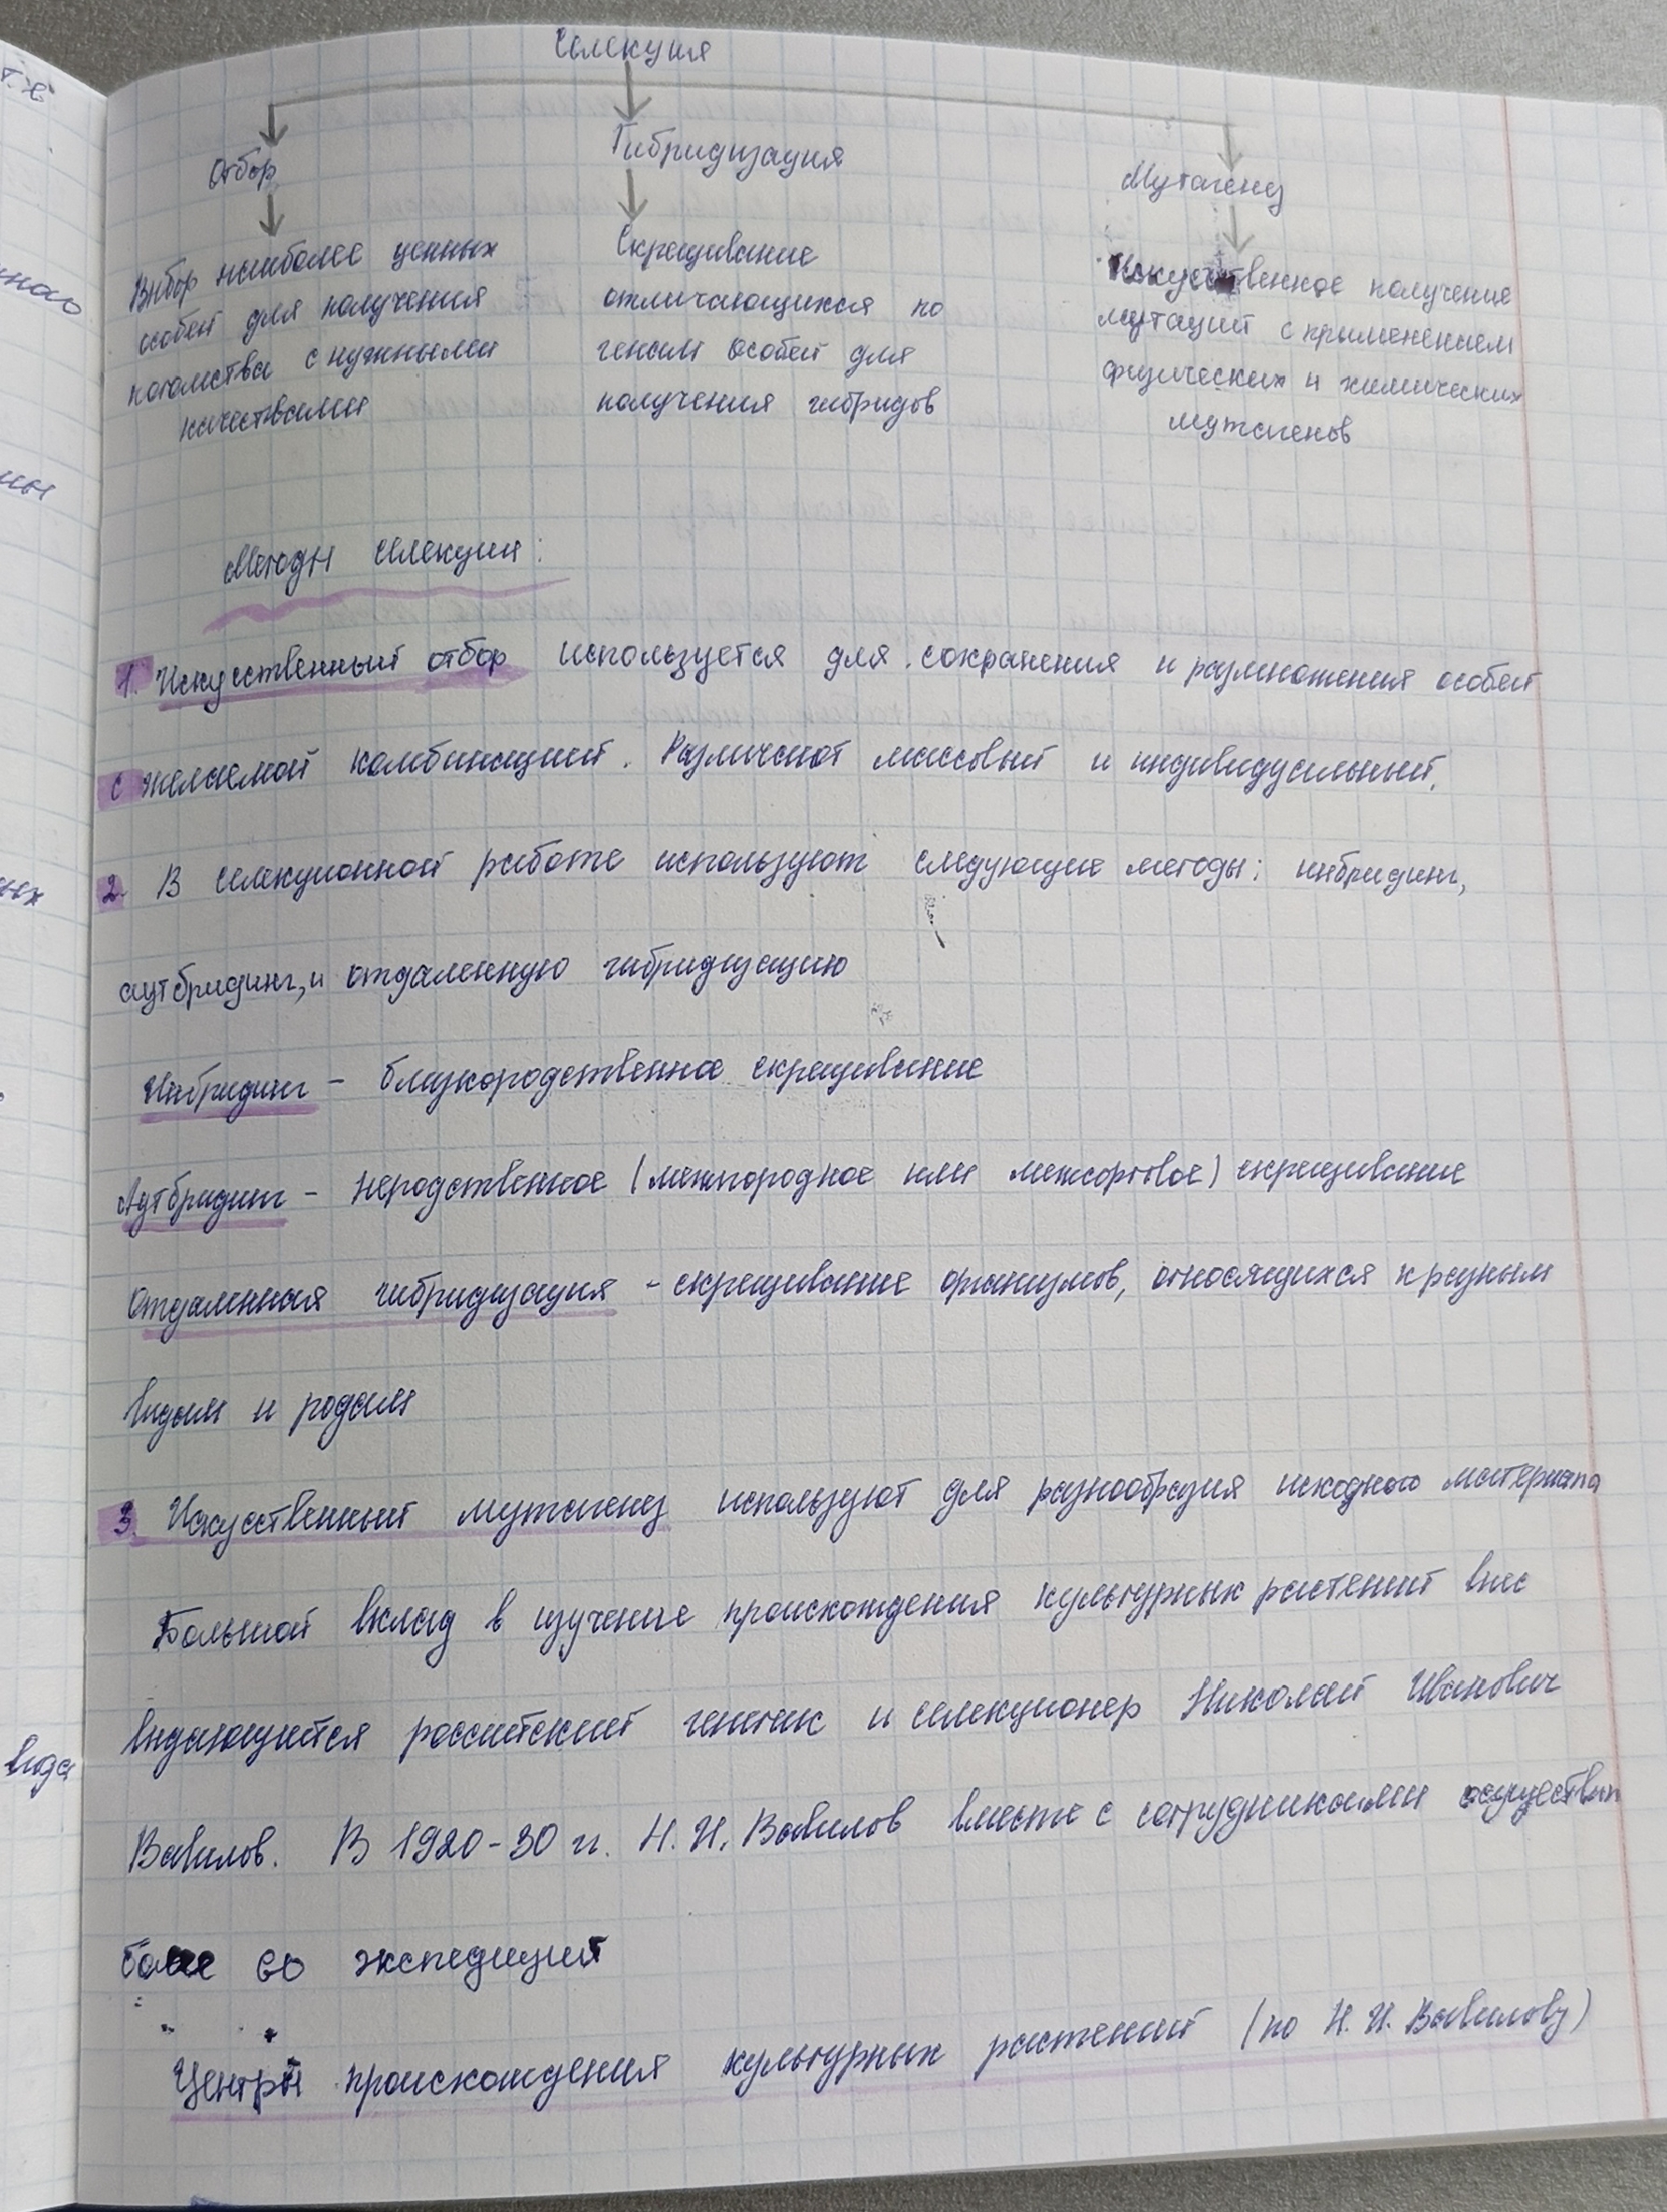 Селекция
Отбор
Гибридизация
Мутагенез
Выбор наиболее ценных
особей для получения
потомства с нужными
качествами
Скрещивание
отличающихся по
генам особей для
получения гибридов
Искусственное получение
мутаций с применением
физических и химических
мутагенов
Методы селекции:
1. Искусственный отбор используется для сохранения и размножения особей
с желаемой комбинацией. Различают массовый и индивидуальный.
2. В селекционной работе используют следующие методы: инбридинг,
аутбридинг, и отдаленную гибридизацию
Инбридинг - близкородственное скрещивание
Аутбридинг - неродственное (межпородное или межсортовое) скрещивание
Отдаленная гибридизация - скрещивание организмов, относящихся к разным
видам и родам
3. Искусственный мутагенез используют для разнообразия исходного материала
Большой вклад в изучение происхождения культурных растений внес
выдающийся российский генетик и селекционер Николай Иванович
Вавилов. В 1920-30 гг. Н. И. Вавилов вместе с сотрудниками осуществил
более 60 экспедиций
Центры происхождения культурных растений (по Н. И. Вавилову)
вида